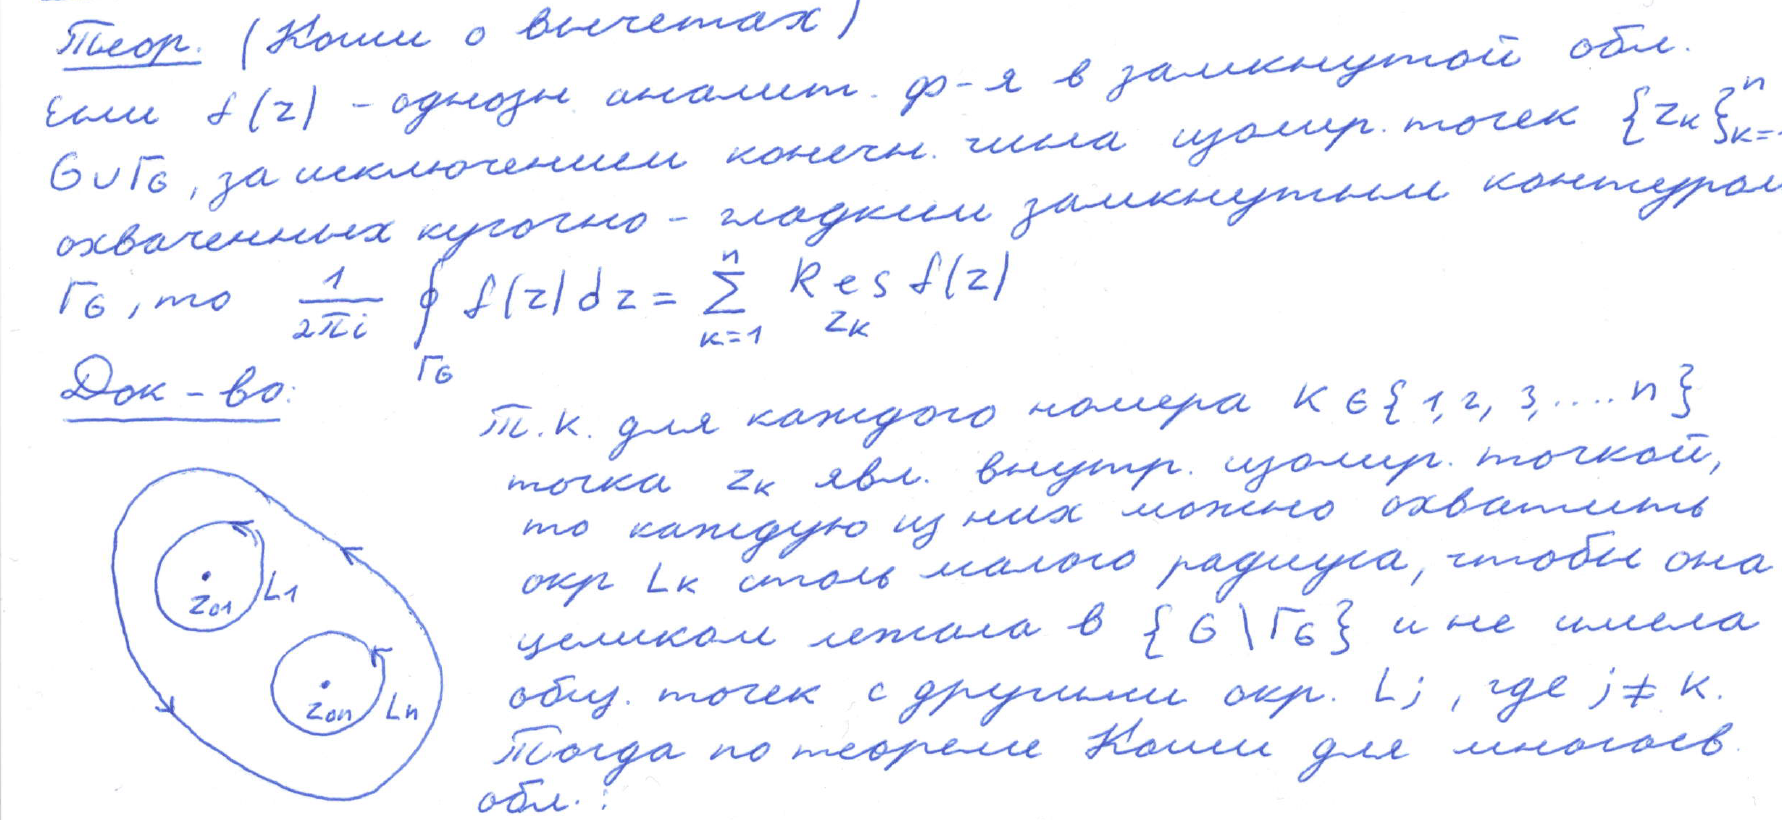 Теор. (Коши о вычетах)
Если f(z) - однозн аналит. ф-я в замкнутой обл.
G∪ΓG, за исключением конечн. числа изолир. точек {zк}ⁿк=
охваченных кусочно - гладким замкнутым контуром
ΓG, то 1/2πi ∮ΓG f(z)dz = Σⁿк=1 Res zк f(z)
Док - во:
Т.к. для каждого номера K ∈ {1, 2, 3, .... n}
точка zк явл. внутр. изолир. точкой,
то каждую из них можно охватить
окр Lк столь малого радиуса, чтобы она
целиком лежала в {G\ΓG} и не имела
общ. точек с другими окр. Lj, где j ≠ K.
Тогда по теореме Коши для многосв.
обл. :
z01 L1
z0n Ln